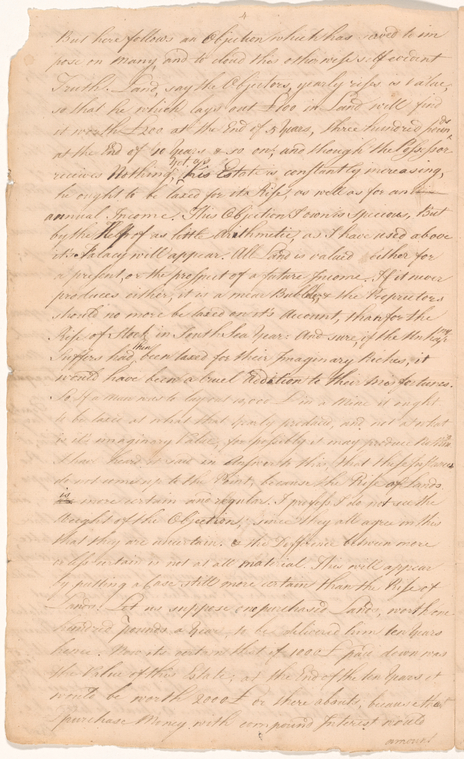 4
But here follows an Objection which has served to im
pose on many, and to cloud this otherwise self evident
Truth. Land, say the Objectors, yearly rises as to value,
so that he which lays out £100 in Land will find
it worth £200 at the End of 5 Years, three hundred pounds
at the End of 10 Years & so on, and though the Possessor
receives Nothing, yet as his Estate is constantly increasing,
he ought to be taxed for its Rise, as well as for an
annual Income. This Objection I own is specious, But
by the Help of as little Arithmetic, as I have used above
its Falacy will appear. All Land is valued either for
a present, or the prospect of a future Income. If it never
produces either, it is a mere Bubble, & the Proprietors
should no more be taxed on its Account, than for the
Rise of Stock in South Sea Year: And sure, if the
Suffers had then been taxed for their Imaginary Riches, it
would have been a cruel Addition to their Misfortunes.
So if a Man was to lay out in a Mine it ought
to be taxed at what that yearly produces, and not at what
is its imaginary Value, for possibly it may produce
I have heard it said in Answer to this, that these Instances
do not come up to the Point, because the Rise of Lands
is more certain and regular. I profess I do not see the
Weight of the Objection, since they all agree in this
that they are uncertain & the Difference between more
or less certain is not at all material. This will appear
by putting a Case still more certain than the Rise of
Lands. Let us suppose one purchased Lands, worth one
hundred pounds a Year, to be delivered him ten Years
hence. Now its certain that if 1000£ paid down was
the Value of this Estate, at the End of the ten Years it
would be worth 2000£ or there abouts, because that
purchase Money with compound Interest would
amount